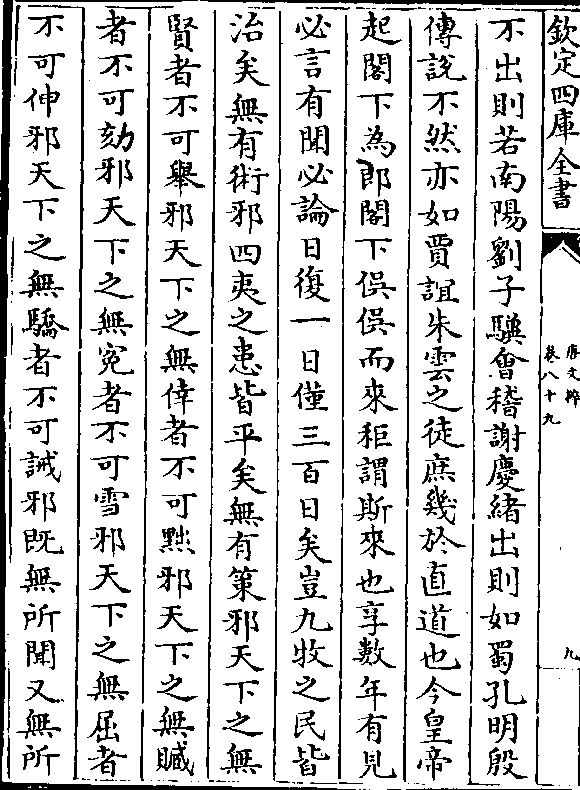 欽定四庫全書
唐文粹
卷八十九
九
不出則若南陽劉子驥會稽謝慶緒出則如蜀孔明殷
傅說不然亦如賈誼朱雲之徒庶幾於直道也今皇帝
起閣下為郎閣下俁俁而來秬謂斯來也享數年有見
必言有聞必論日復一日僅三百日矣豈九牧之民皆
治矣無有術邪四夷之患皆平矣無有策邪天下之無
賢者不可舉邪天下之無倖者不可黜邪天下之無贓
者不可劾邪天下之無寃者不可雪邪天下之無屈者
不可伸邪天下之無驕者不可誡邪既無所聞又無所